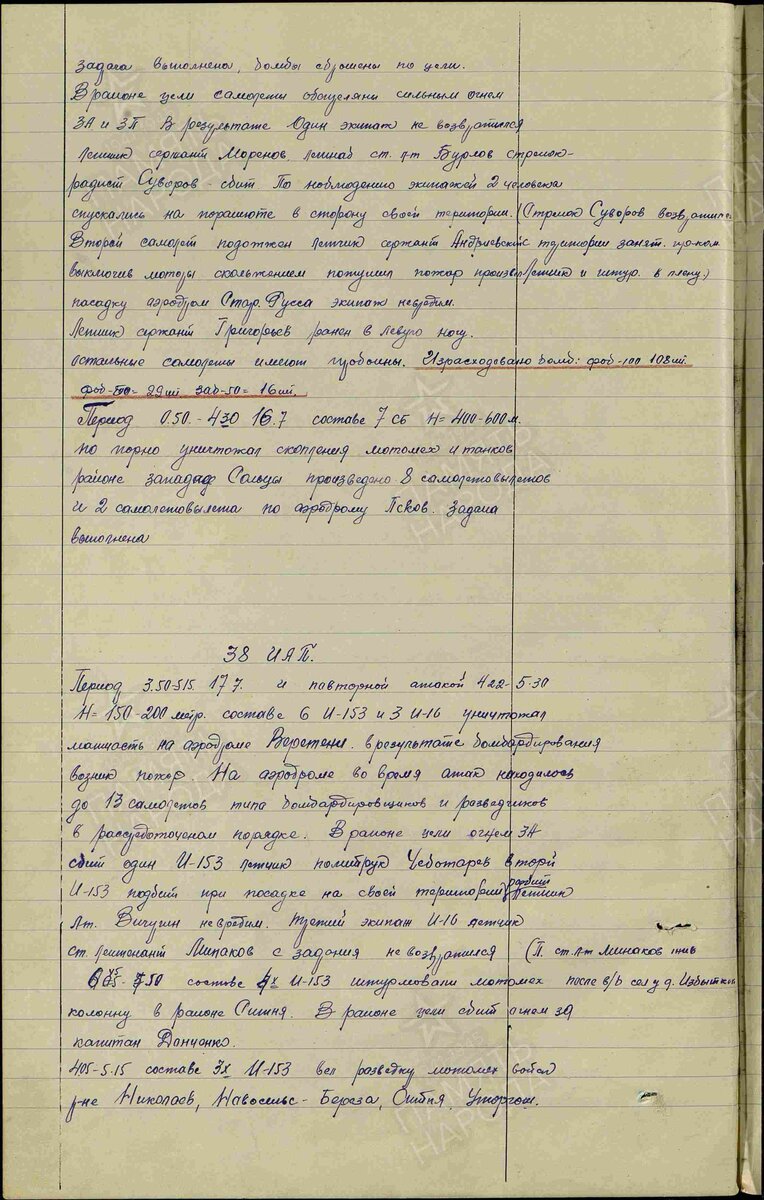 задача выполнена, бомбы сброшены по цели.
В районе цели самолеты обстреляны сильным огнем
ЗА и ЗП В результате Один экипаж не возвратился
Летчик сержант Моренов, летнаб ст. л-т Бурлов стрелок-
радист Суворов - сбит По наблюдению экипажей 2 человека
спускались на парашюте в сторону своей територии. (Стрелок Суворов возвратился
Второй самолет подожжен летчик сержант Андриевский с територии занят. пр-ком
выключив моторы скольжением потушил пожар произвел Летчик и штур. в плену.)
посадку аэродром Стар. Русса экипаж невредим.
Летчик сержант Григорьев ранен в левую ногу.
остальные самолеты имеют пробоины. Израсходовано бомб: фаб-100 108шт.
29шт ЗАБ-50= 16шт.
Период 0.50.-430 16.7 составе 7 СБ Н= 400-600м.
по парно уничтожал скопления мотомех и танков
районе Сольцы произведено 8 самолетовылетов
и 2 самолетовылета по аэродрому Псков. Задача
выполнена
38 ИАП.
Период 3.50-515. 17 7. и повторной атакой 422-5.30
Н= 150-200 метр. составе 6 И-153 и 3 И-16 уничтожал
матчасть на аэродроме Веретени. в результате бомбардирования
возник пожар. На аэродроме во время атак находилось
до 13 самолетов типа бомбардировщиков и разведчиков
в рассредоточеном порядке. В районе цели огнем ЗА
сбит один И-153 летчик политрук Чеботарев второй
И-153 подбит при посадке на своей територии разбит летчик
л-т. Вичугин невредим. третий экипаж И-16 летчик
ст. лейтенант Минаков с задания не возвратился (Л. ст. л-т Минаков
составе 4х И-153 штурмовали мотомех после в/б сел у д. Избытково
колонну в районе Ситня. В районе цели сбит огнем за
капитан Данченко.
405-5.15 составе 3х И-153 вел разведку мотомех войск
р-не Николаев, Навоселье-Береза, Ситня, Уторгош.